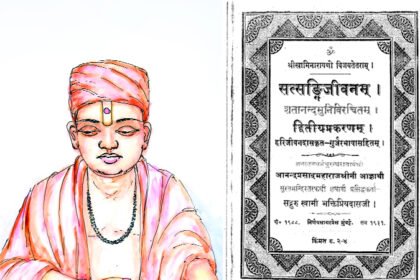 ॐ
श्रीस्वामिनारायणो विजयतेतराम् ।
सत्सङ्गिजीवनम् ।
शतानन्दमुनिविरचितम् ।
द्वितीयप्रकरणम् ।
हरिजीवनदासकृत-गुर्जरभाषासहितम् ।
आनन्दप्रसादमहाराजश्रीनी आज्ञाथी
सद्गुरु स्वामी भक्तिप्रियदासजी ।